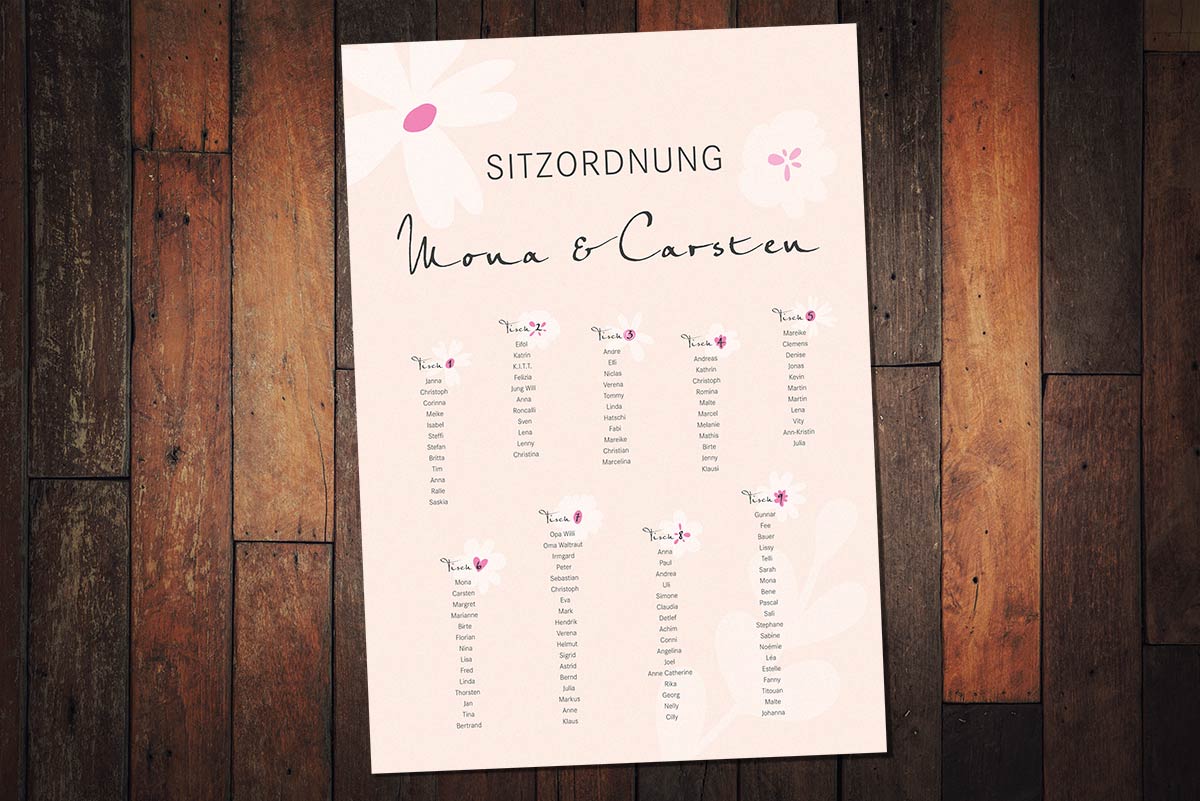 SITZORDNUNG
Mona & Carsten
Tisch 1
Janna
Christoph
Corinna
Meike
Isabel
Steffi
Stefan
Britta
Tim
Anna
Ralle
Saskia
Tisch 2
Eifol
Katrin
K.I.T.T.
Felizia
Jung Willi
Anna
Roncalli
Sven
Lena
Lenny
Christina
Tisch 3
Andre
Elli
Niclas
Verena
Tommy
Linda
Hatschi
Fabi
Mareike
Christian
Marcelina
Tisch 4
Andreas
Kathrin
Christoph
Romina
Malte
Marcel
Melanie
Mathis
Birte
Jenny
Klausi
Tisch 5
Mareike
Clemens
Denise
Jonas
Kevin
Martin
Martin
Lena
Vity
Ann-Kristin
Julia
Tisch 6
Mona
Carsten
Margret
Marianne
Birte
Florian
Nina
Lisa
Fred
Linda
Thorsten
Jan
Tina
Bertrand
Tisch 7
Opa Willi
Oma Waltraut
Irmgard
Peter
Sebastian
Christoph
Eva
Mark
Hendrik
Verena
Helmut
Sigrid
Astrid
Bernd
Julia
Markus
Anne
Klaus
Tisch 8
Anna
Paul
Andrea
Uli
Simone
Claudia
Detlef
Achim
Conni
Angelina
Joel
Anne Catherine
Rika
Georg
Nelly
Cilly
Tisch 9
Gunnar
Fee
Bauer
Lissy
Telli
Sarah
Mona
Bene
Pascal
Sali
Stephane
Sabine
Noémie
Léa
Estelle
Fanny
Titouan
Malte
Johanna